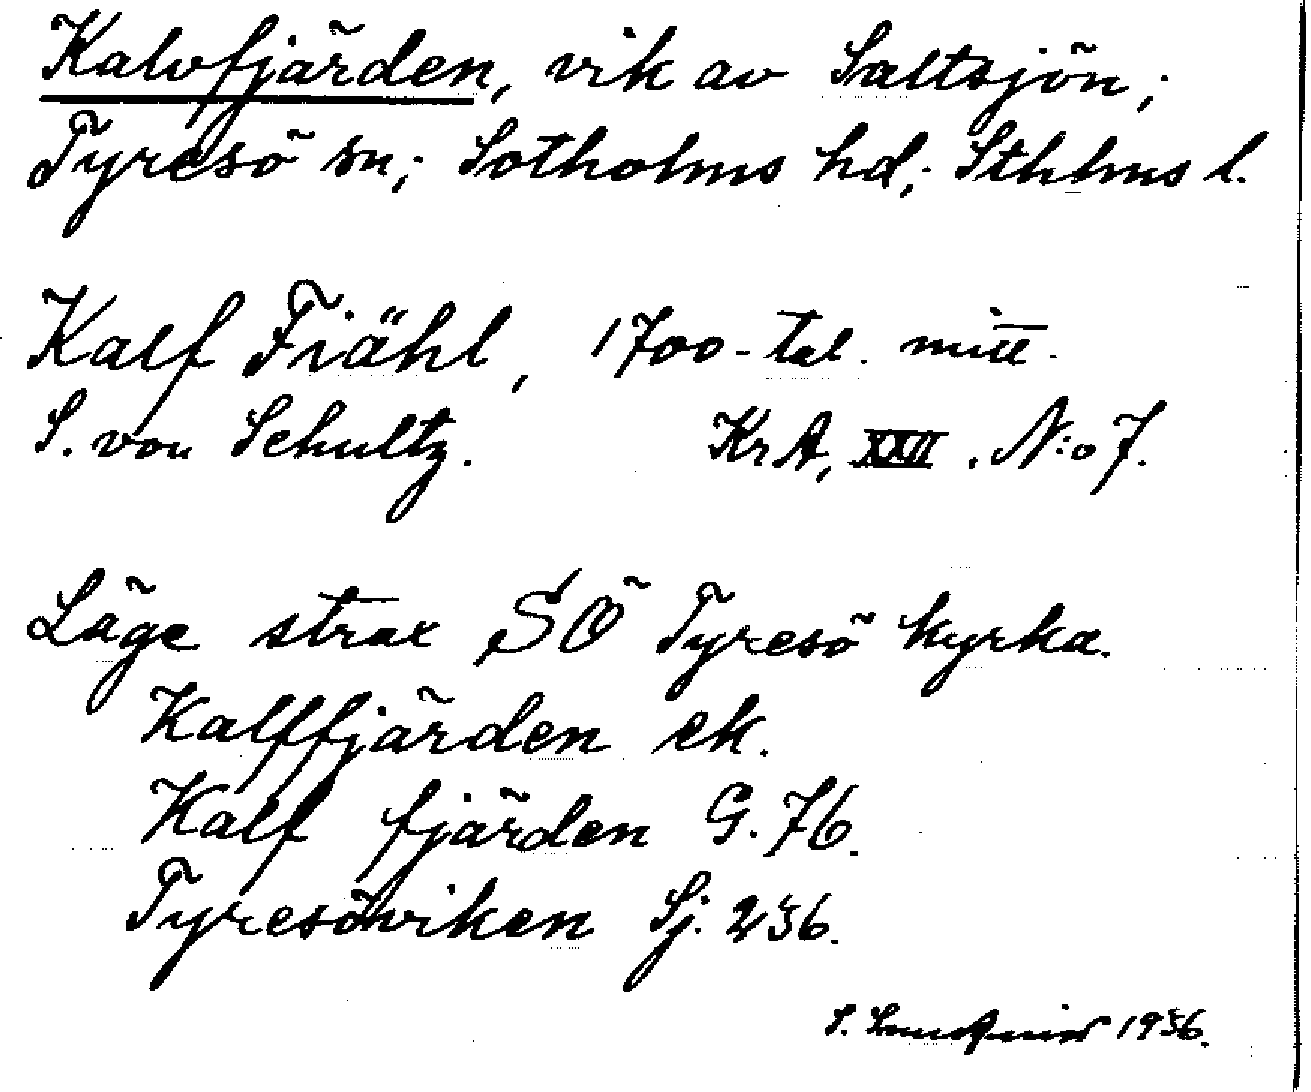 Kalvfjärden, vik av Saltsjön;
Tyresö sn; Sotholms hd; Sthlms l.
Kalf Fiähl, 1700-tal. mitt.
S. von Schultz. KrA, XXII. N:o 7.
Läge strax SÖ Tyresö kyrka.
Kalffjärden ek.
Kalf fjärden G. 76.
Tyresöviken Sj. 236.
S. 1936.